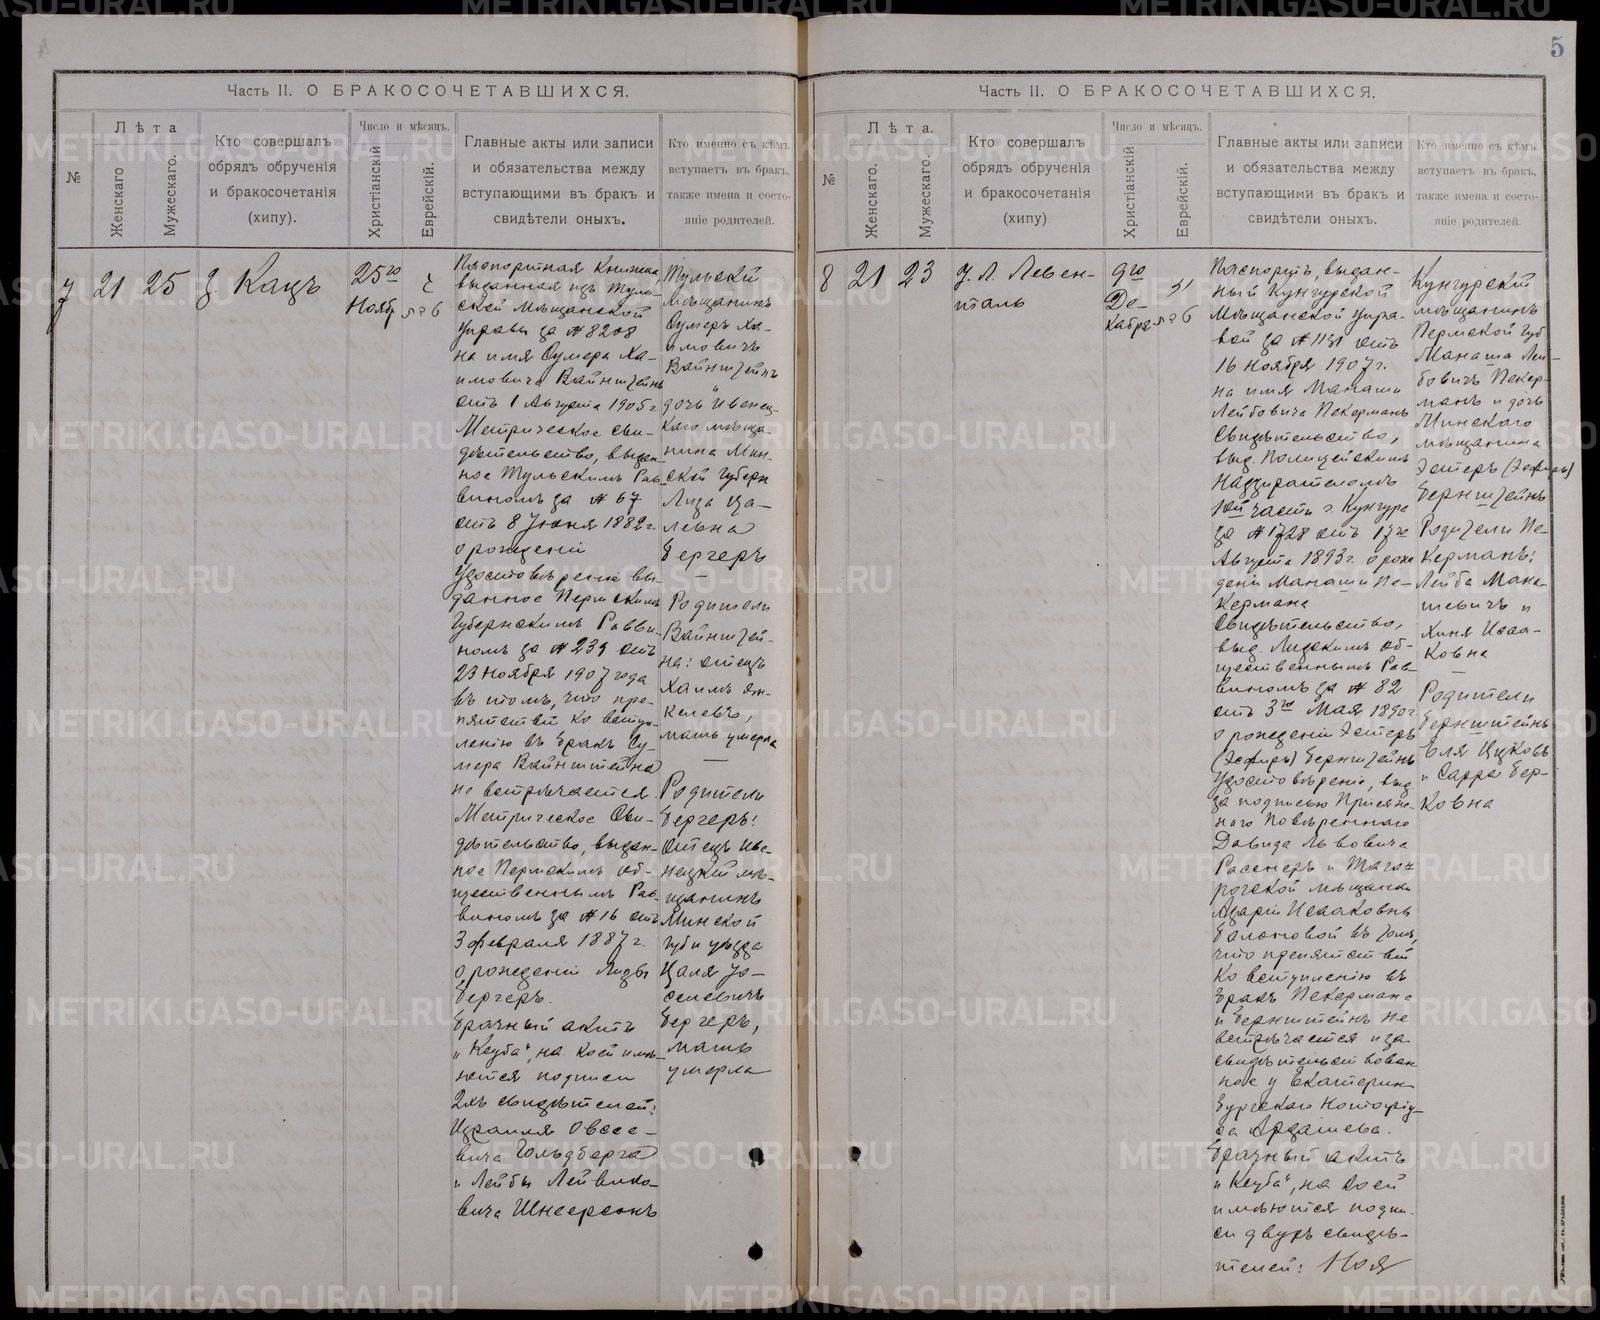 5
Часть II. О БРАКОСОЧЕТАВШИХСЯ.
№
Лѣта
Женскаго
Мужескаго.
Кто совершалъ
обрядъ обрученія
и бракосочетанія
(хипу).
Число и мѣсяцъ.
Христіанскій
Еврейскій.
Главные акты или записи
и обязательства между
вступающими въ бракъ и
свидѣтели оныхъ.
Кто именно съ кѣмъ
вступаетъ въ бракъ,
также имена и состо-
яніе родителей.
7
21
25
З. Кацъ
25го
Ноябр
Паспортная Книжка,
выданная изъ Туль-
ской Мѣщанской
Управы за № 8208
на имя Сумера Ха-
имовича Вайнштейнъ
отъ 1 Августа 1905 г.
Метрическое сви-
дѣтельство, выдан-
ное Тульскимъ Рав-
виномъ за № 67
отъ 8 Іюня 1882 г.
о рожденіи
Удостовѣреніе вы-
данное Пермскимъ
Губернскимъ Равви-
номъ за № 239 отъ
23 Ноября 1907 года
въ томъ, что пре-
пятствій ко вступ-
ленію въ бракъ Су-
мера Вайнштейна
не встрѣчается.
Метрическое Сви-
дѣтельство, выдан-
ное Пермскимъ об-
щественнымъ Рав-
виномъ за № 16 отъ
3 февраля 1887 г.
о рожденіи Лизы
Бергеръ.
Брачный актъ
„Ксуба", на коей имѣ-
ются подписи
2хъ свидѣтелей:
Израиля Овсее-
вича Гольдберга
и Лейбы Лейвико-
вича Шнеерсонъ
Тульскій
мѣщанинъ
Сумеръ Ха-
имовичъ
Вайнштейнъ
и
дочь Ивенец-
каго мѣща-
нина Мин-
ской Губерн
Лиза Ца-
левна
Бергеръ
—
Родители
Вайнштей-
на: отецъ
Хаимъ Ян-
келевъ,
мать умерла
—
Родители
Бергеръ:
Отецъ Иве-
нецкій мѣ-
щанинъ
Минской
губ и уѣзда
Цаля Іо-
селевичъ
Бергеръ,
мать
умерла
Часть II. О БРАКОСОЧЕТАВШИХСЯ.
№
Лѣта.
Женскаго.
Мужескаго.
Кто совершалъ
обрядъ обрученія
и бракосочетанія
(хипу)
Число и мѣсяцъ.
Христіанскій
Еврейскій.
Главные акты или записи
и обязательства между
вступающими въ бракъ и
свидѣтели оныхъ.
Кто именно съ кѣмъ
вступаетъ въ бракъ,
также имена и состо-
яніе родителей.
8
21
23
У. Л. Левен-
таль
9го
Де-
кабря
Паспортъ, выдан-
ный Кунгурской
Мѣщанской упра-
вой за № 1131 отъ
16 Ноября 1907 г.
на имя Манаши
Лейбовича Пекерманъ
Свидѣтельство,
выд. Полицейскимъ
Надзирателемъ
1ой части г. Кунгура
за № 1728 отъ 17го
Августа 1893 г. о рож
деніи Манаши Пе-
кермана
Свидѣтельство,
выд. Лидскимъ об-
щественнымъ Рав-
виномъ за № 82
отъ 3го Мая 1890 г
о рожденіи Эстеръ
(Эсфирь) Бернштейнъ
Удостовѣреніе, выд
за подписью Присяж-
наго Повѣреннаго
Давида Львовича
Расснеръ и Таган
рогской мѣщанки
Исааковны
въ томъ,
что препятствій
ко вступленію въ
бракъ Пекерманъ
и Бернштейнъ не
встрѣчается и за-
свидѣтельствован
ное у Екатерин-
бургскаго Нотаріу-
са Ардашева.
Брачный актъ
„Ксуба", на коей
имѣются подпи-
си двухъ свидѣ-
телей: Ноя
Кунгурскій
мѣщанинъ
Пермской Губ
Манаша Лей-
бовичъ Пекер-
манъ и дочь
Минскаго
мѣщанина
Эстеръ (Эсфирь)
Бернштейнъ
Родители Пе-
керманъ:
Лейба Мана-
шевичъ и
Хиня Исаа-
ковна
—
Родители
Бернштейнъ
Еля Ицковъ
и Сарра Бер-
ковна